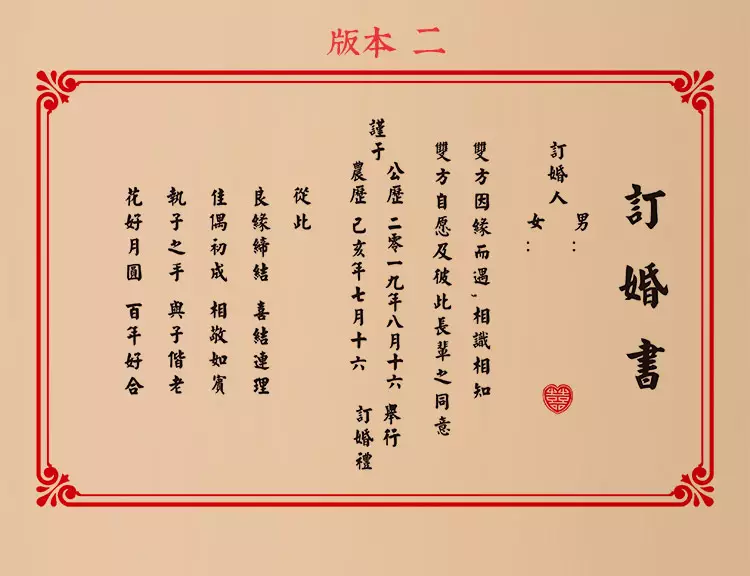 版本 二
訂婚書
訂婚人
男：
女：
雙方因緣而遇，相識相知
雙方自愿及彼此長輩之同意
謹于
公歷 二零一九年八月十六 舉行
農歷 己亥年七月十六 訂婚禮
從此
良緣締結 喜結連理
佳偶初成 相敬如賓
執子之手 與子偕老
花好月圓 百年好合
囍